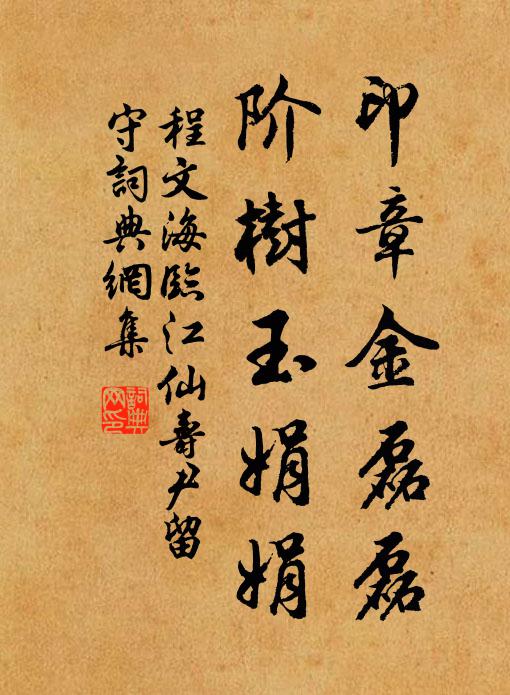 印章金磊磊
阶樹玉娟娟
程文海臨江仙壽尹留
守詞典網集
詞典网印